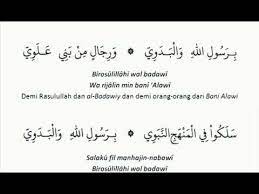 بِرَسُولِ اللهِ وَالْبَدَوِيِّ * وَرِجَالٍ مِنْ بَنِي عَلَوِيِّ
Birosûlillâhi wal badawî
Wa rijâlin min banî 'Alawî
Demi Rasulullah dan al-Badawiy dan demi orang-orang dari Bani Alawi
سَلَكُوا فِي الْمَنْهَجِ النَّبَوِي * بِرَسُولِ اللهِ وَالْبَدَوِيِّ
Salakû fil manhajin-nabawî
Birosûlillâhi wal badawî